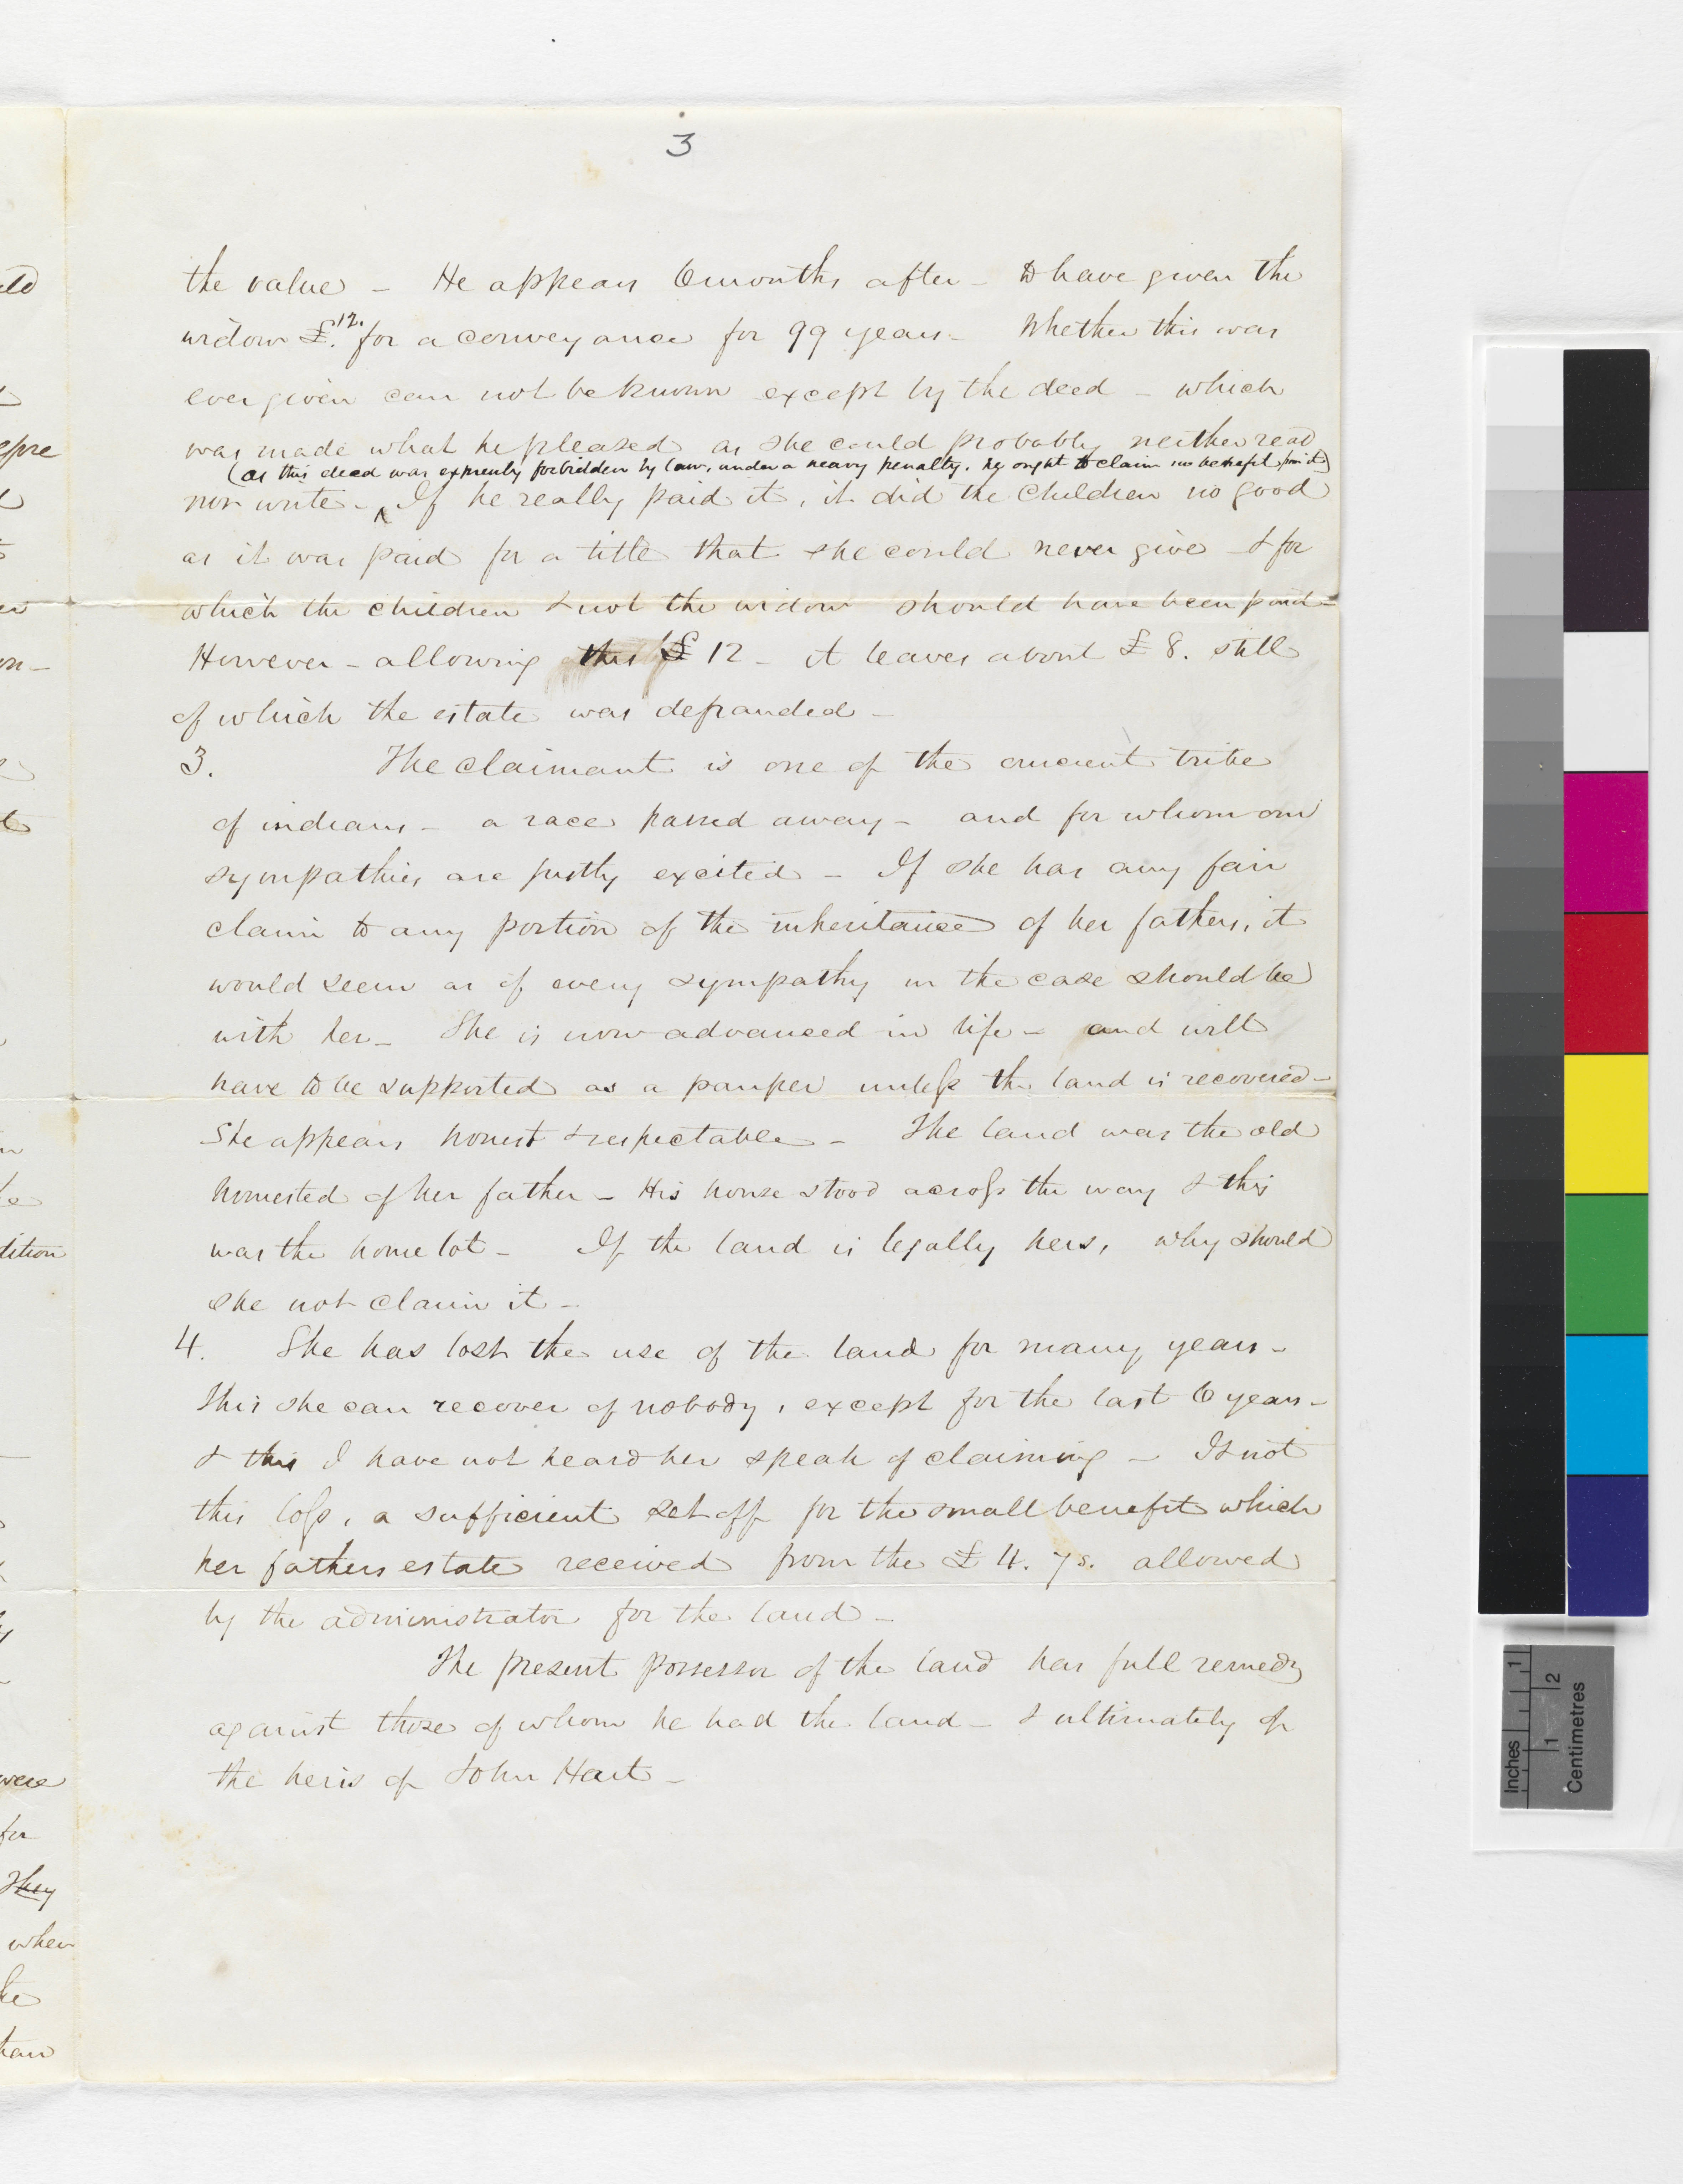 3
the value - He appears 6 months after - to have given the
widow £12. for a conveyance for 99 years - Whether this was
ever given can not be known except by the deed - which
was made what he pleased as she could probably neither read
(as this deed was expressly forbidden by law, under a heavy penalty, he ought to claim no benefit from it)
nor write - If he really paid it, it did the children no good
as it was paid for a title that she could never give - & for
which the children & not the widow should have been paid -
However - allowing this £12 - it leaves about £8. still
of which the estate was defrauded -
3. The claimant is one of the ancient tribe
of indians - a race passed away - and for whom our
sympathies are justly excited - If she has any fair
claim to any portion of the inheritance of her fathers, it
would seem as if every sympathy in the case should be
with her - She is now advanced in life - and will
have to be supported as a pauper unless the land is recovered -
She appears honest & respectable - The land was the old
homested of her father - His house stood across the way & this
was the home lot - If the land is legally hers, why should
she not claim it -
4. She has lost the use of the land for many years -
This she can recover of nobody, except for the last 6 years -
& this I have not heard her speak of claiming - Is not
this loss, a sufficient set off for the small benefit which
her fathers estate received from the £4. 7s. allowed
by the administrator for the land -
The present possessor of the land has full remedy
against those of whom he had the land - & ultimately of
the heirs of John Hart -
dition
were
for
They
when
Inches
1
Centimetres
1
2